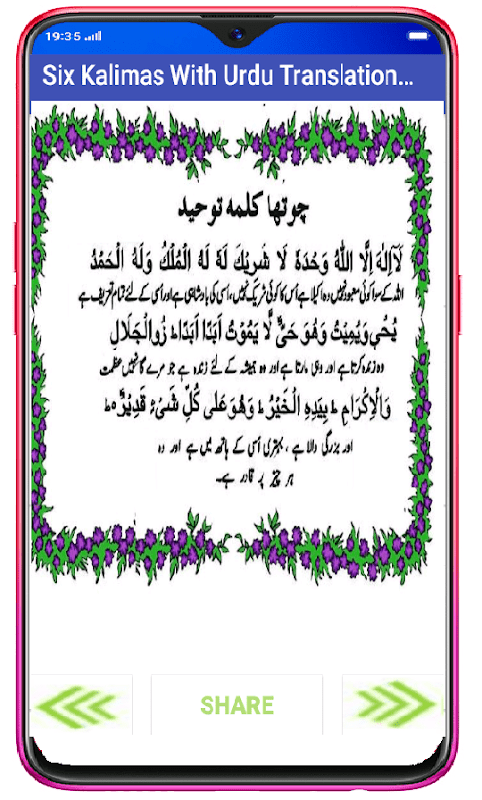 19:35
Six Kalimas With Urdu Translation...
چوتھا کلمہ توحید
لَآ اِلٰهَ اِلَّا اللّٰهُ وَحْدَهٗ لَا شَرِيْكَ لَهٗ لَهُ الْمُلْكُ وَلَهُ الْحَمْدُ
اللہ کے سوا کوئی معبود نہیں وہ اکیلا ہے اُس کا کوئی شریک نہیں، اسی کی بادشاہی ہے اور اسی کے لئے تمام تعریف ہے
يُحْيٖ وَيُمِيْتُ وَهُوَ حَىٌّ لَّا يَمُوْتُ اَبَدًا اَبَدًا ؕ ذُوالْجَلَالِ
وہ زندہ کرتا ہے اور وہی مارتا ہے اور وہ ہمیشہ کے لئے زندہ ہے جو مرے گا نہیں عظمت
وَالْاِكْرَامِ ؕ بِيَدِهِ الْخَيْرُ ؕ وَهُوَ عَلٰى كُلِّ شَىْءٍ قَدِيْرٌ ؕ
اور بزرگی والا ہے ، بہتری اُسی کے ہاتھ میں ہے اور وہ
ہر چیز پر قادر ہے۔
SHARE